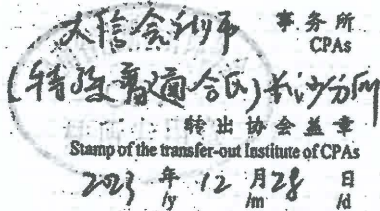 大信会计师 事务所
CPAs
(特殊普通合伙)长沙分所
转出协会盖章
Stamp of the transfer-out Institute of CPAs
2023 年 12 月 28 日
/y /m /d